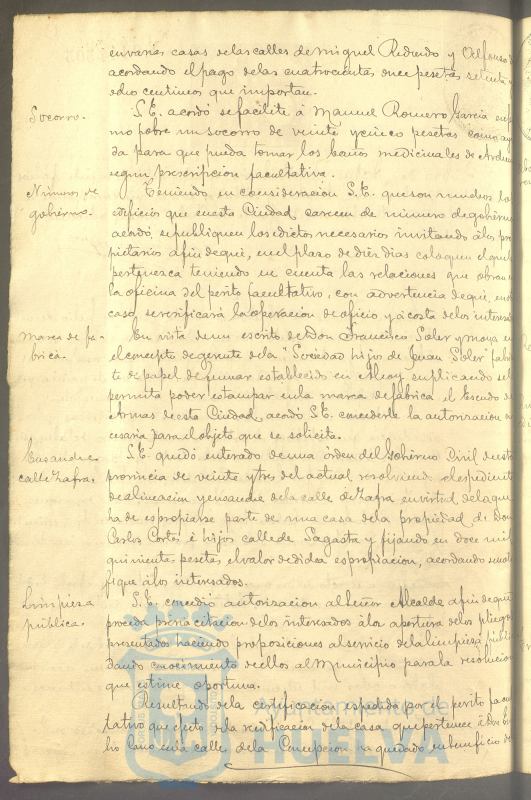 en varias casas de las calles de Miguel Redondo y Alfonso
acordando el pago de las cuatrocientas once pesetas setenta y
ocho centimos que importan.
Socorro.
S.E. acordó se facilite á Manuel Romero Garcia enfer
mo pobre un socorro de veinte y cinco pesetas como ayu
da para que pueda tomar los baños medicinales de
segun prescripcion facultativa.
Números de
gobierno.
Teniendo en consideracion S.E. que son muchos los
edificios que en esta Ciudad carecen de número de gobierno
acordó se publiquen los edictos necesarios invitando á los pro
pietarios a fin de que, en el plazo de diez dias coloquen el que les
pertenezca teniendo en cuenta las relaciones que obran en
la oficina del perito facultativo, con advertencia de que, en otro
caso, se verificará la operacion de oficio y á costa de los interesa
Marca de fa-
brica.
En vista de un escrito de Don Francisco Soler y Moya en
el concepto de gerente de la "Sociedad hijos de Juan Soler fabri
te de papel de fumar establecido en Alcoy, suplicando se le
permita poder estampar en la marca de fabrica el Escudo de
Armas de esta Ciudad, acordó S.E. concederle la autorizacion ne
cesaria para el objeto que se solicita.
Ensanche
calle Zafra.
S.E. quedó enterado de una órden del Gobierno Civil de esta
provincia de veinte y tres del actual resolviendo el espediente
de alineacion y ensanche de la calle de Zafra en virtud de la que
ha de espropiarse parte de una casa de la propiedad de Don
Carlos Cortés é hijos calle de Sagasta y fijando en doce mil
quinientas pesetas el valor de dicha espropiacion, acordando se noti
fique á los interesados.
Limpieza
pública.
S.E. concedió autorizacion al Señor Alcalde a fin de que
proceda previa citacion de los interesados á la apertura de los pliegos
presentados haciendo proposiciones al servicio de la limpieza públi
dando conocimiento de ellos al Municipio para la resolucion
que estime oportuna.
Resultando de la certificacion espedida por el perito facul
tativo que ejecutó la reedificacion de la casa que pertenece á Don
Cano en la calle de la Concepcion ha quedado en beneficio de
Ayuntamiento de
HUELVA